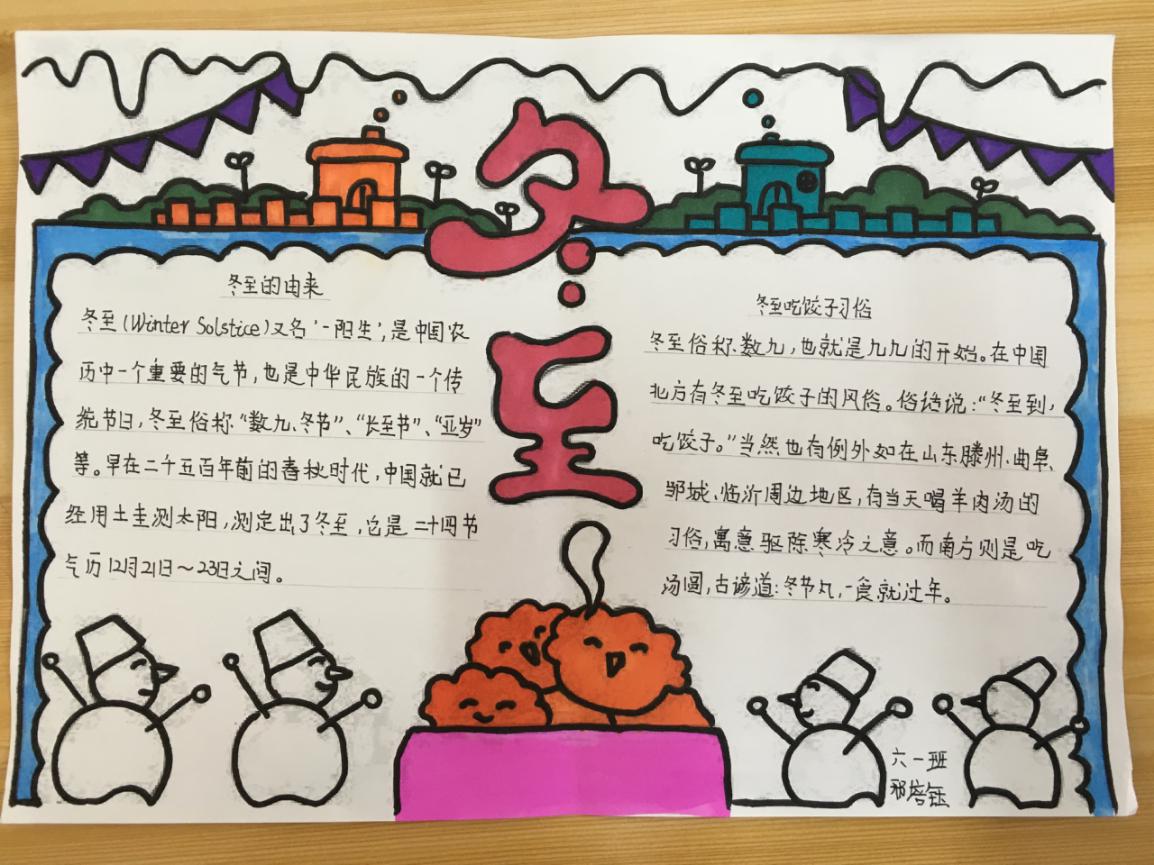 冬至
冬至的由来
冬至(Winter Solstice)又名'一阳生',是中国农
历中一个重要的气节,也是中华民族的一个传
统节日,冬至俗称“数九、冬节”、“长至节”、“亚岁”
等。早在二千五百年前的春秋时代,中国就已
经用土圭测太阳,测定出了冬至,它是二十四节
气历12月21日~23日之间。
冬至吃饺子习俗
冬至俗称数九,也就是九九的开始。在中国
北方有冬至吃饺子的风俗。俗话说:“冬至到,
吃饺子。”当然也有例外如在山东滕州、曲阜、
邹城、临沂周边地区,有当天喝羊肉汤的
习俗,寓意驱除寒冷之意。而南方则是吃
汤圆,古谚道:冬节丸,一食就过年。
六一班